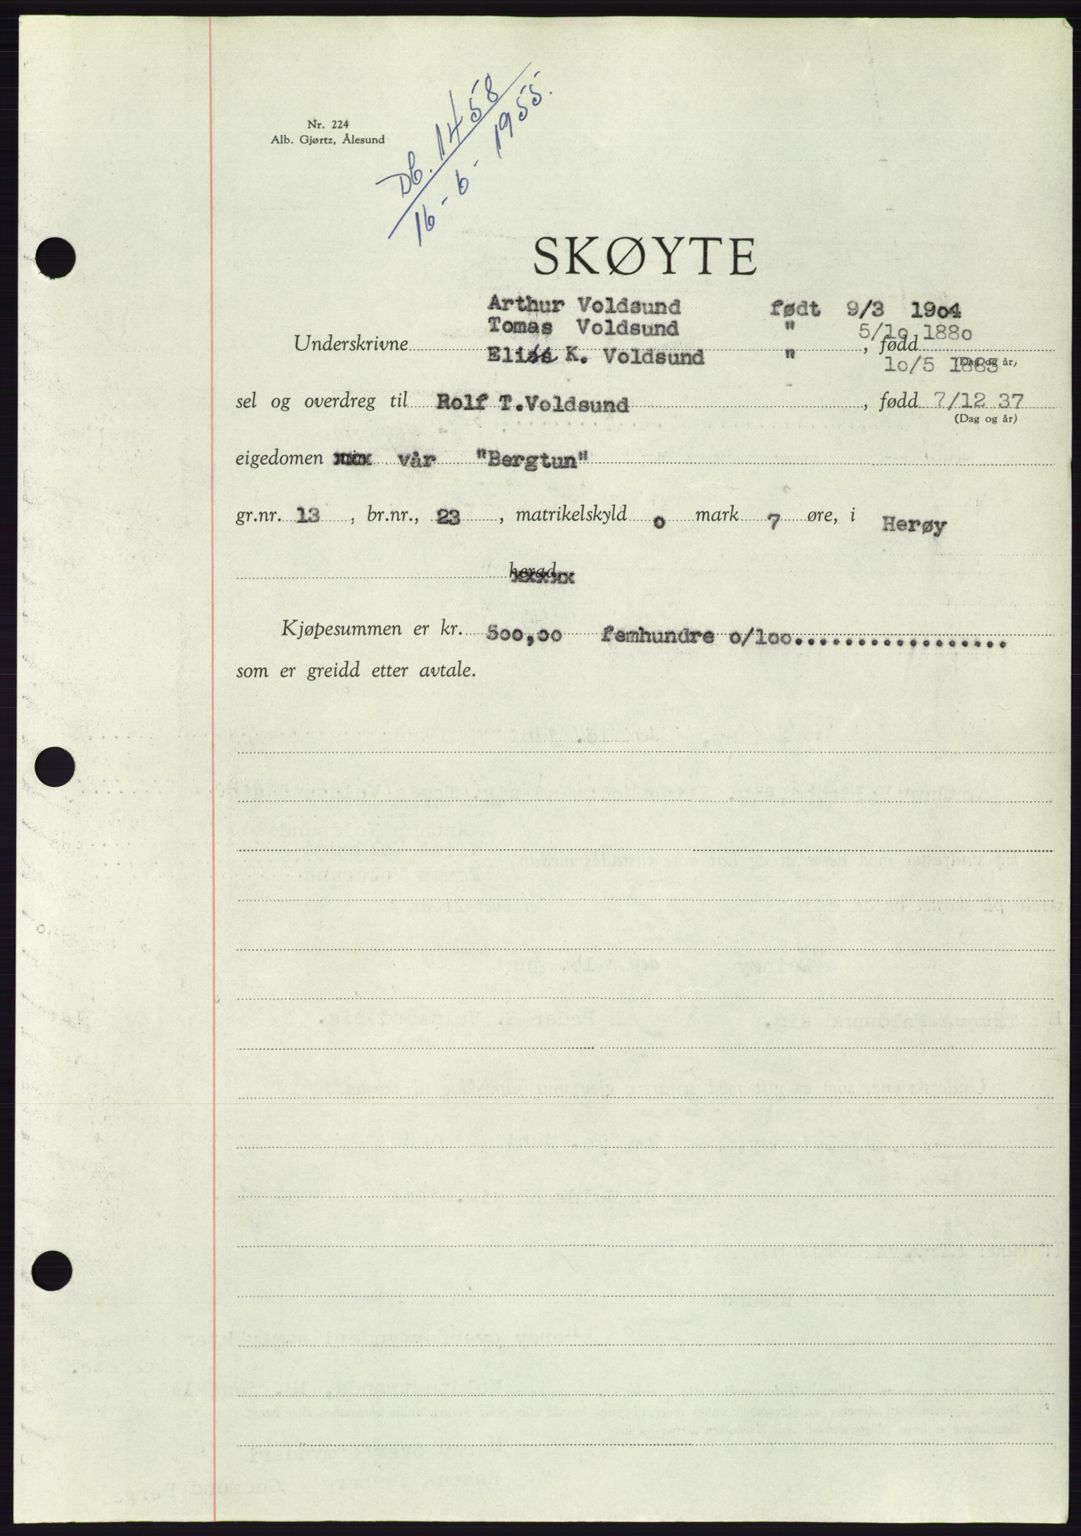 Nr. 224
Alb. Gjørtz, Ålesund
Db. 1458
16-6-1955.
SKØYTE
Arthur Voldsund født 9/3 1904
Tomas Voldsund " 5/10 1880
Underskrivne , fødd
K. Voldsund " 10/5
(Dag og år)
sel og overdreg til Rolf T.Voldsund , fødd 7/12 37
(Dag og år)
eigedomen xxx vår "Bergtun"
gr.nr. 13 , br.nr., 23 , matrikelskyld 0 mark 7 øre, i Herøy
herad
Kjøpesummen er kr. 500,00 femhundre 0/100.................
som er greidd etter avtale.